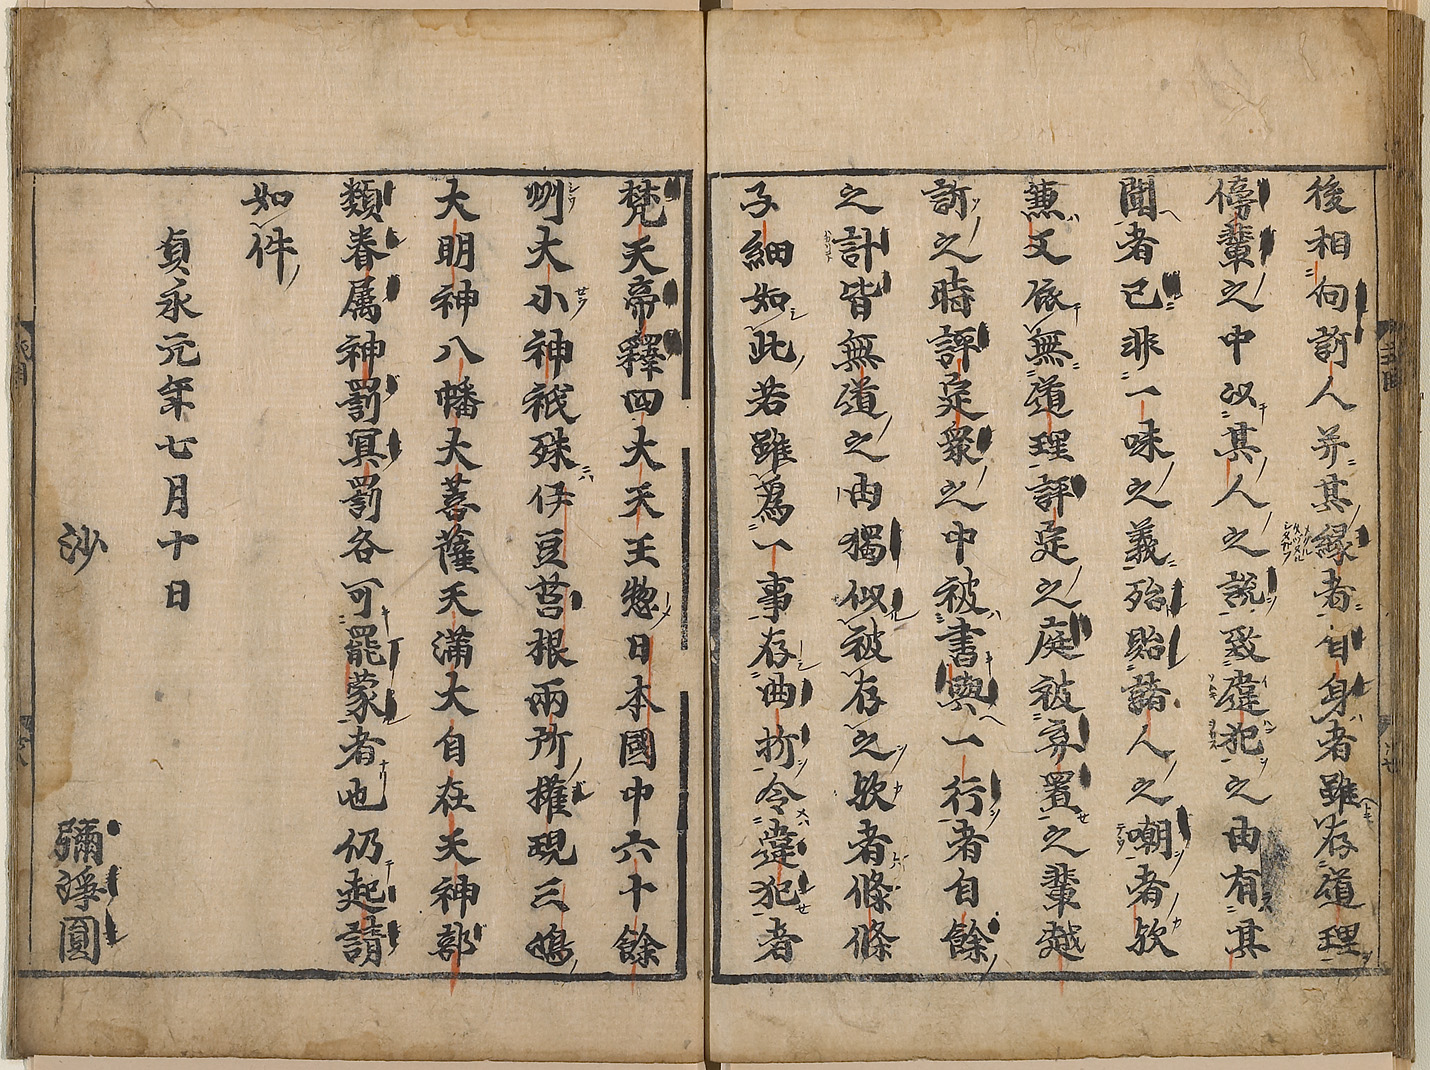 後相向訴人并其縁者自身者雖存道理
傍輩之中以其人之説致違犯之由有其
聞者已非一味之義殆貽諸人之嘲者歟
兼又依無道理評定之庭被弃置之輩越
訴之時評定衆之中被書與一行者自餘
之計皆無道之由獨似被存之歟者條條
子細如此若雖爲一事存曲折令違犯者
梵天帝釋四大天王惣日本國中六十餘
州大小神祇殊伊豆筥根兩所權現三嶋
大明神八幡大菩薩天滿大自在天神部
類眷属神罰冥罰各可罷蒙者也仍起請
如件
貞永元年七月十日
沙弥淨圓